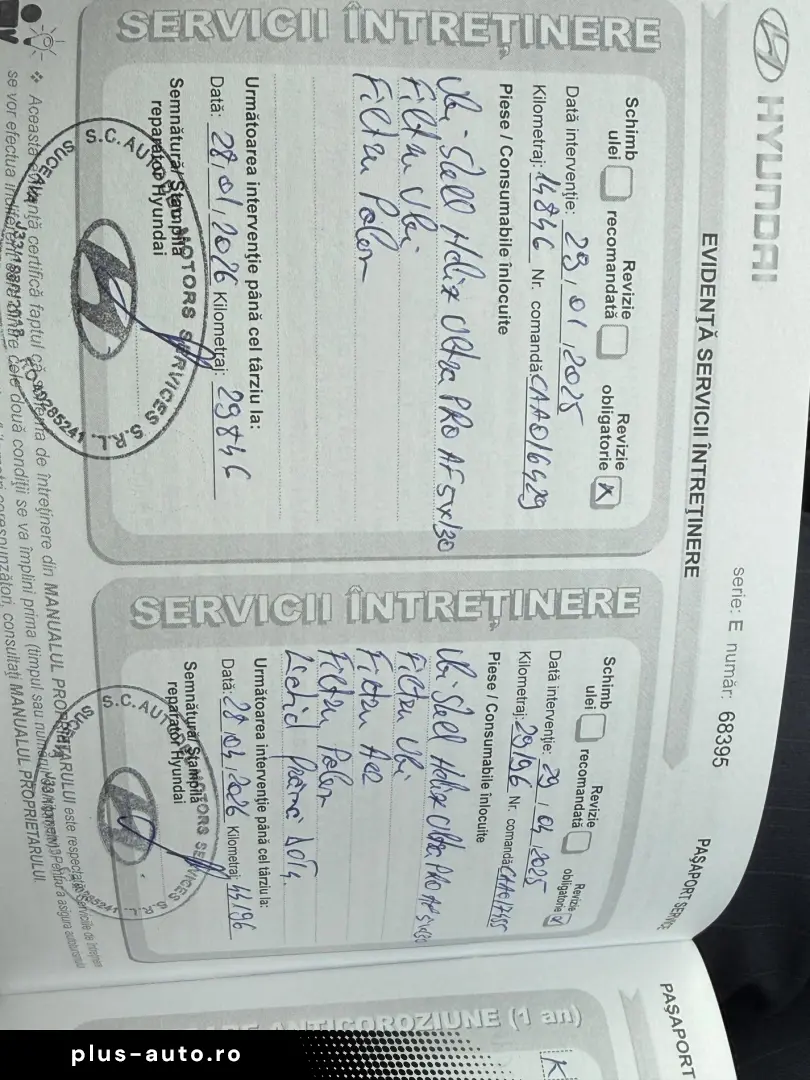 HYUNDAI
serie: E număr: 68395
EVIDENȚĂ SERVICII ÎNTREȚINERE
PAȘAPORT SERVICE
SERVICII ÎNTREȚINERE
Schimb ulei
Revizie recomandată
Revizie obligatorie X
Dată intervenție: 29.01.2025
Kilometraj: 14846 Nr. comandă: CAAO16429
Piese / Consumabile înlocuite
Ulei Shell Helix Ultra PRO AF 5W/30
Filtru Ulei
Filtru Polen
Următoarea intervenție până cel târziu la:
Dată: 28.01.2026 Kilometraj: 29846
Semnătură/ Ștampilă
reparator Hyundai
S.C. AUTO MOTORS SERVICES S.R.L.
SUCEAVA
SERVICII ÎNTREȚINERE
Schimb ulei
Revizie recomandată
Revizie obligatorie X
Dată intervenție: 29.04.2025
Kilometraj: 29196 Nr. comandă:
Piese / Consumabile înlocuite
Ulei Shell Helix Ultra PRO AF 5W/30
Filtru Ulei
Filtru Aer
Filtru Polen
Lichid frână DOT4
Următoarea intervenție până cel târziu la:
Dată: 28.04.2026 Kilometraj: 44196
Semnătură/ Ștampilă
reparator Hyundai
Această certifică faptul că de întreținere din MANUALUL PROPRIETARULUI este respectată.
se vor efectua două condiții se va împlini prima (timpul sau consultați MANUALUL PROPRIETARULUI.
PAȘAPORT
ANTICOROZIUNE (1 an)
plus-auto.ro